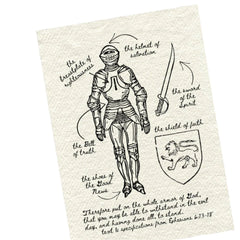 the helmet of
salvation
the
breastplate of
righteousness
the sword
of the
Spirit
the shield of faith
the Belt
of truth
the shoes of
the Good
News
Therefore put on the whole armor of God,
that you may be able to withstand in the evil
day, and having done all, to stand.
text & specifications Ephesians 6:13-18